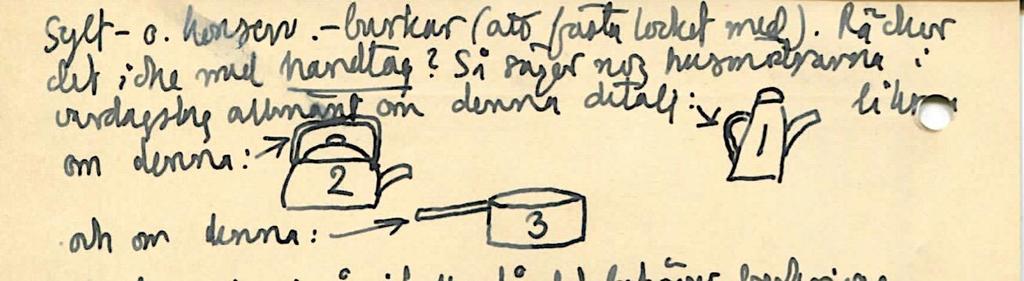 Sylt- o. konserv.-burkar (att fästa locket med). Räcker
det icke med handtag? Så säger nog husmödrarna i
vardagslag allmänt om denna detalj: lik
1
om denna:
2
och om denna:
3